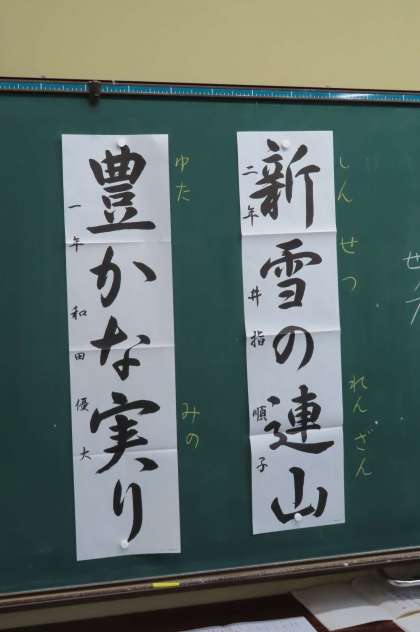 しんせつ れんざん
新雪の連山
二年 井指 順子
ゆた みの
豊かな実り
一年 和田 優大